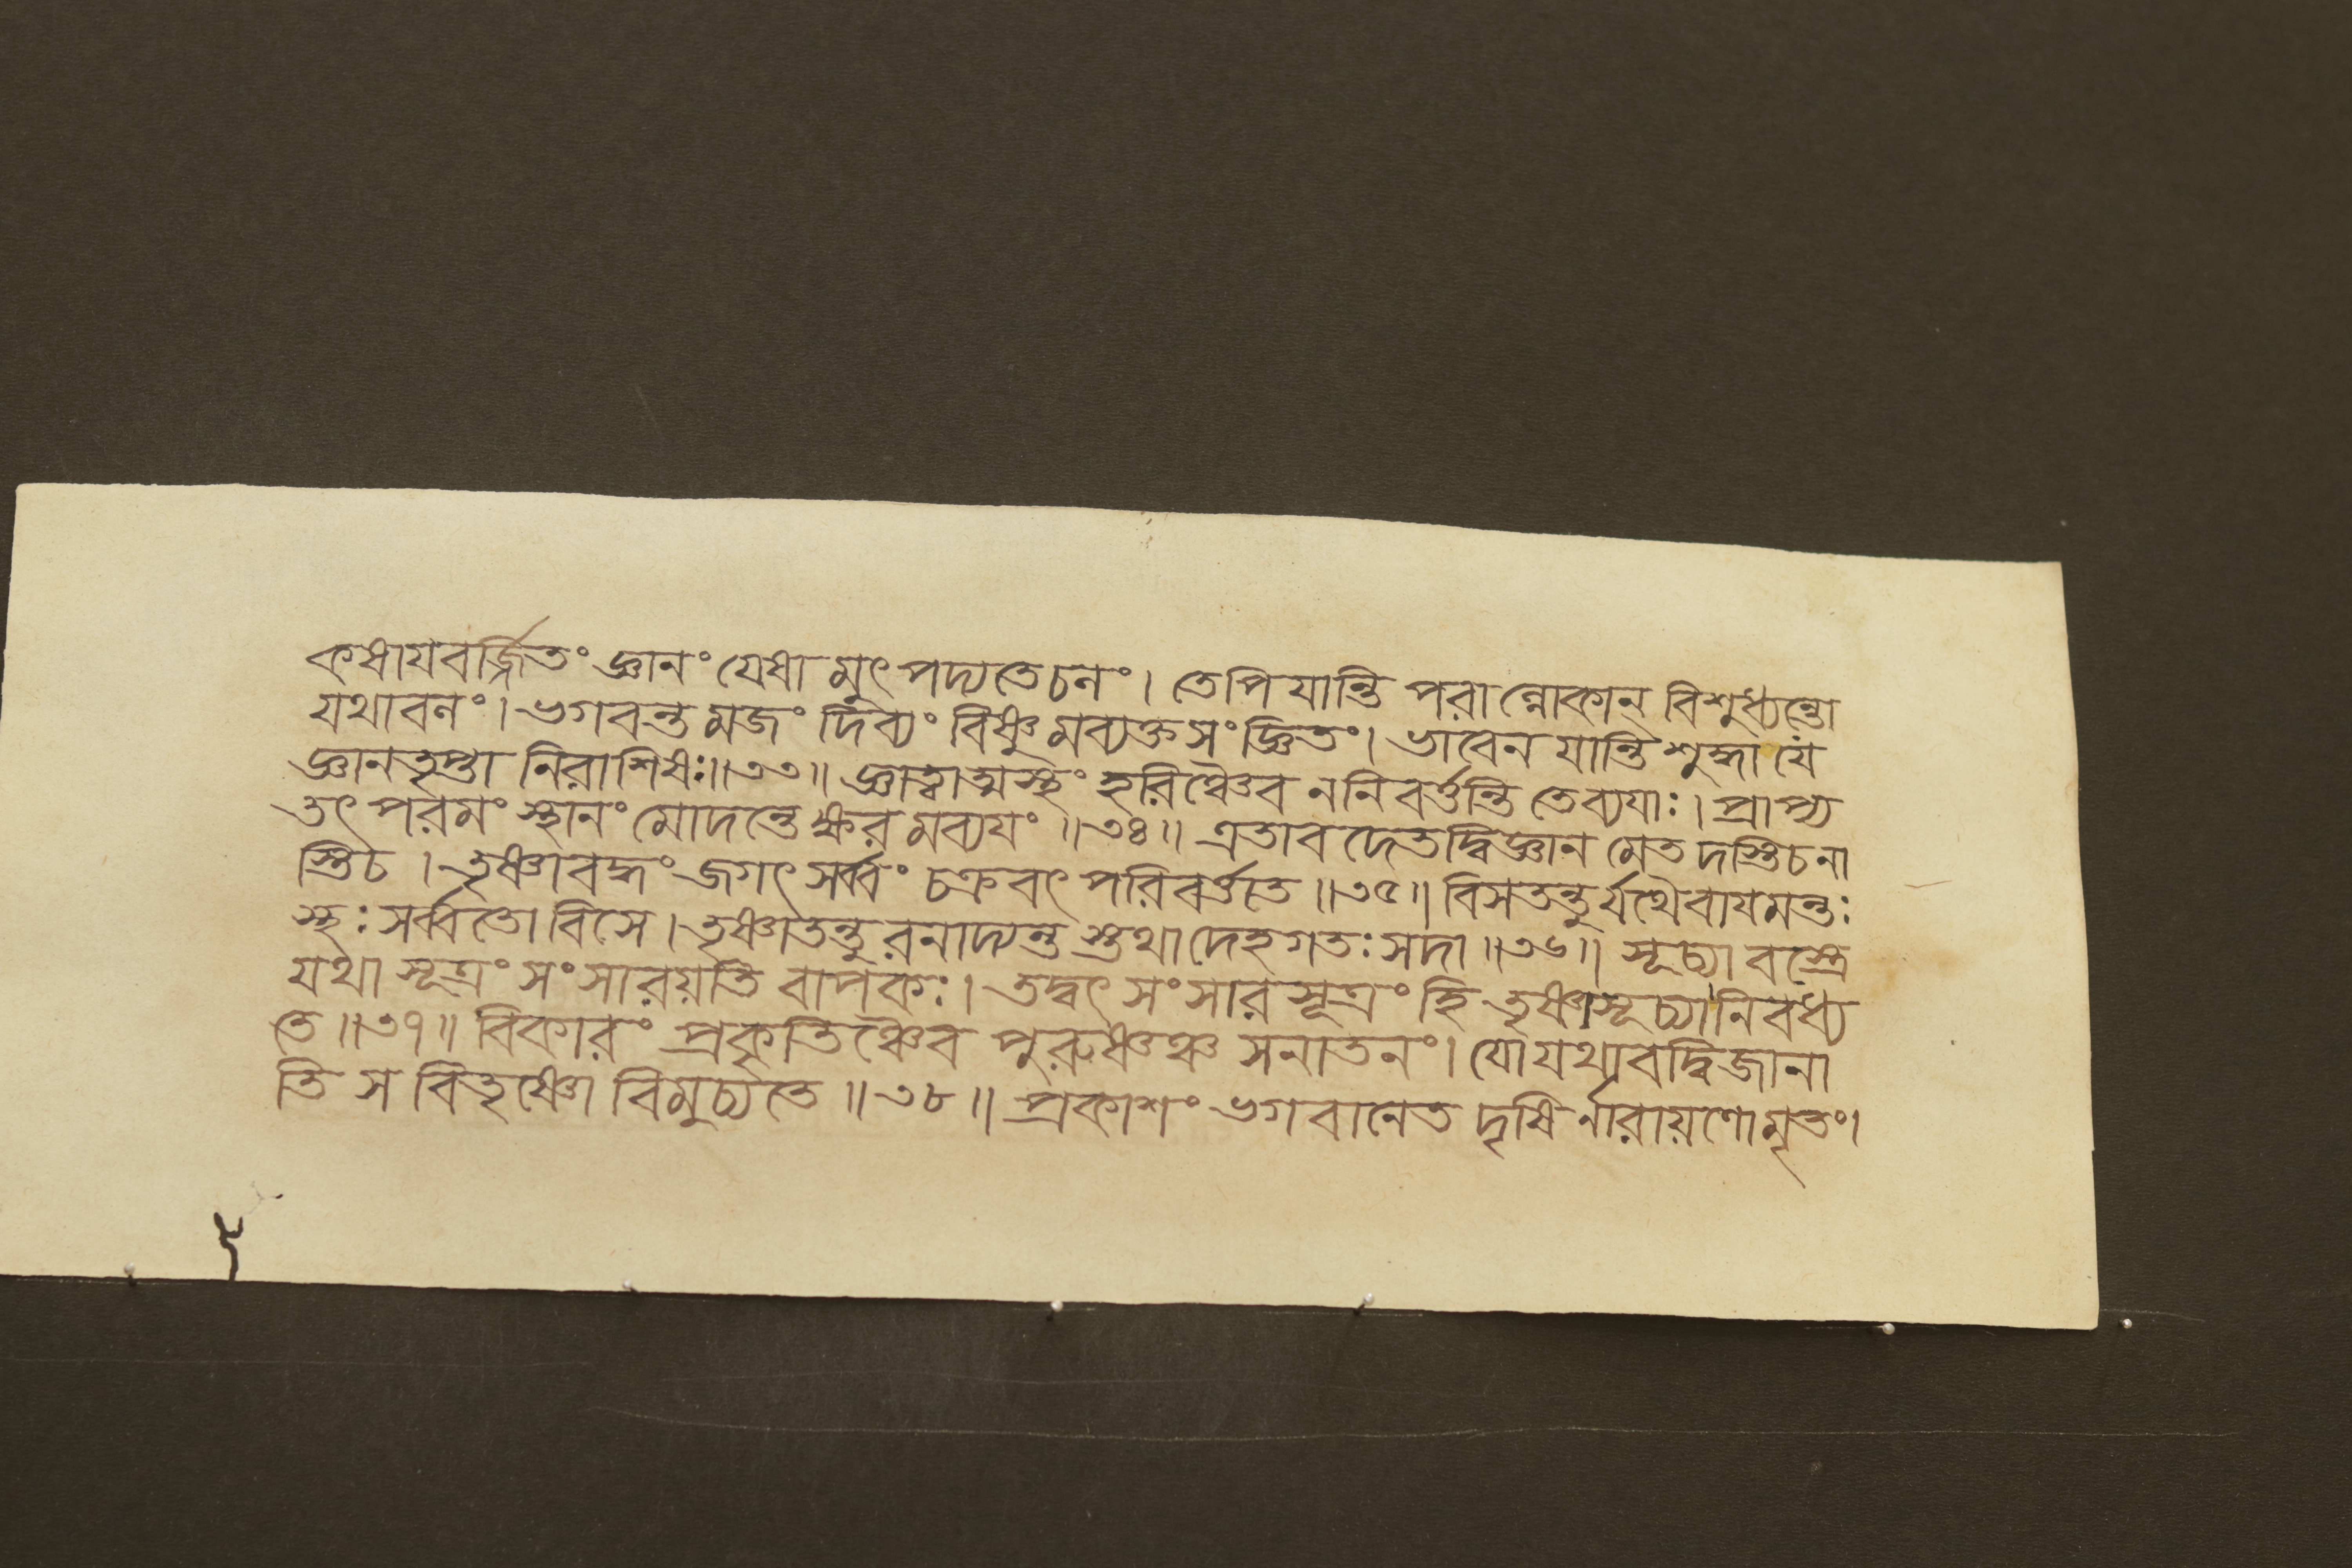 কষাযবর্জ্জিতং জ্ঞানং যেষা মুৎপদ্যতেচনং। তেপি যান্তি পরান্লোকান্ বিশুধ্যন্তো
যথাবনং। ভগবন্ত মজং দিব্যং বিষ্ণু মব্যক্তসংজ্ঞিতং। ভাবেন যান্তি শুদ্ধা যে
জ্ঞানতৃপ্তা নিরাশিষঃ॥৩৩॥ জ্ঞাত্বাত্মস্থং হরিঞ্চৈব ননিবর্ত্তন্তি তেব্যযাঃ। প্রাপ্য
তৎ পরমং স্থানং মোদন্তেক্ষর মব্যযং ॥৩৪॥ এতাব দেতদ্বিজ্ঞান মেত দস্তিচনা
স্তিচ । তৃষ্ণাবদ্ধং জগৎ সর্ব্বং চক্রবৎ পরিবর্ত্ততে ॥৩৫॥ বিসতন্তুর্যথৈবাযমন্তঃ
স্থঃ সর্ব্বতো বিসে । তৃষ্ণাতন্তুরনাদ্যন্ত স্তথা দেহগতঃ সদা ॥৩৬॥ সূচ্যা বস্ত্রে
যথা সূত্রং সংসারয়তি বাপকঃ। তদ্বৎ সংসারসূত্রং হি তৃষ্ণাসূচ্যানিবধ্য
তে ॥৩৭॥ বিকারং প্রকৃতিঞ্চৈব পুরুষঞ্চ সনাতনং। যোযথাবদ্বিজানা
তি স বিতৃষ্ণো বিমুচ্যতে ॥৩৮॥ প্রকাশং ভগবানেত দৃষি র্নারায়ণোমৃতং।